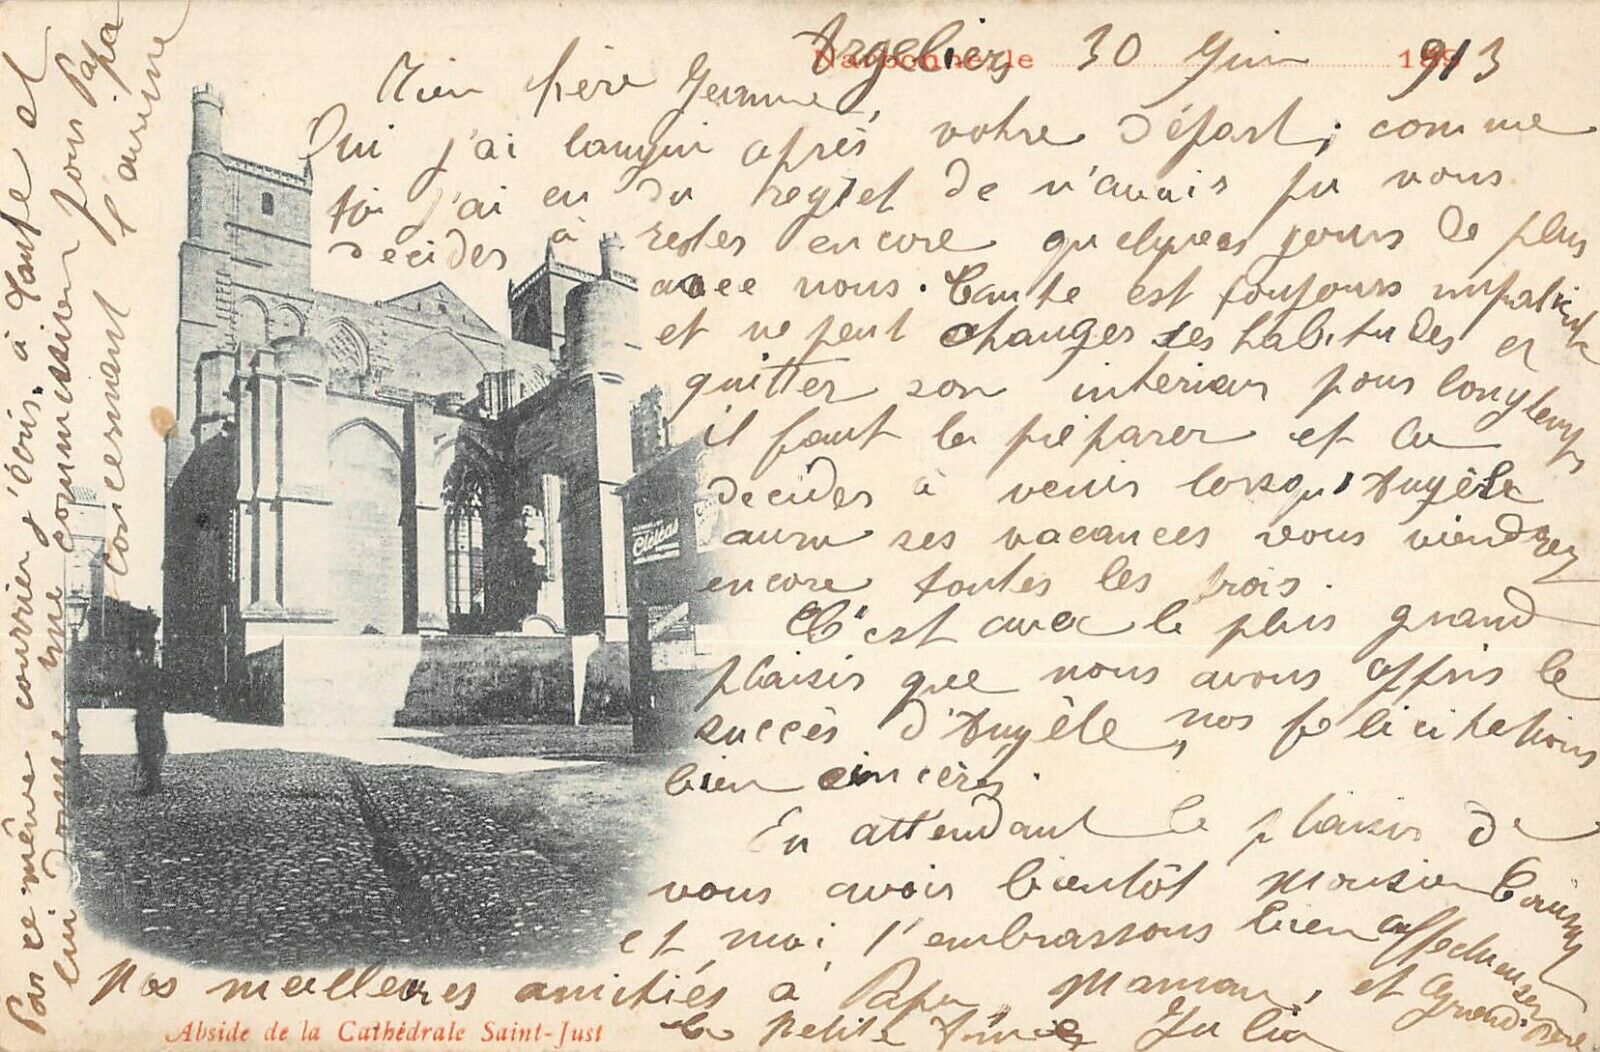 Argeliers 30 Juin 913
Narbonne, le 189
Mien chère Jeanne,
Oui j'ai langui après votre départ, comme
toi j'ai eu du regret de n'avais pu vous
decider à rester encore quelques jours de plus
avec nous. Tante est toujours impatiente
et ne peut changer ses habitudes et
quitter son interieur pour longtemps
il faut la préparer et la
decider à venir lorsqu'Angèle
aura ses vacances vous viendrez
encore toutes les trois.
C'est avec le plus grand
plaisir que nous avons appris le
succès d'Angèle, nos felicitations
bien sincères.
En attendant le plaisir de
vous avoir bientôt Monsieur
et moi t'embrassons bien affectueusement
Nos meilleures amitiés à Papa, Maman, et Grand Père
la petite Julia
Par ce même courrier j'écris à Tante et
lui donne une commission pour Papa
concernant l'avoine
Cléséas
Abside de la Cathédrale Saint-Just